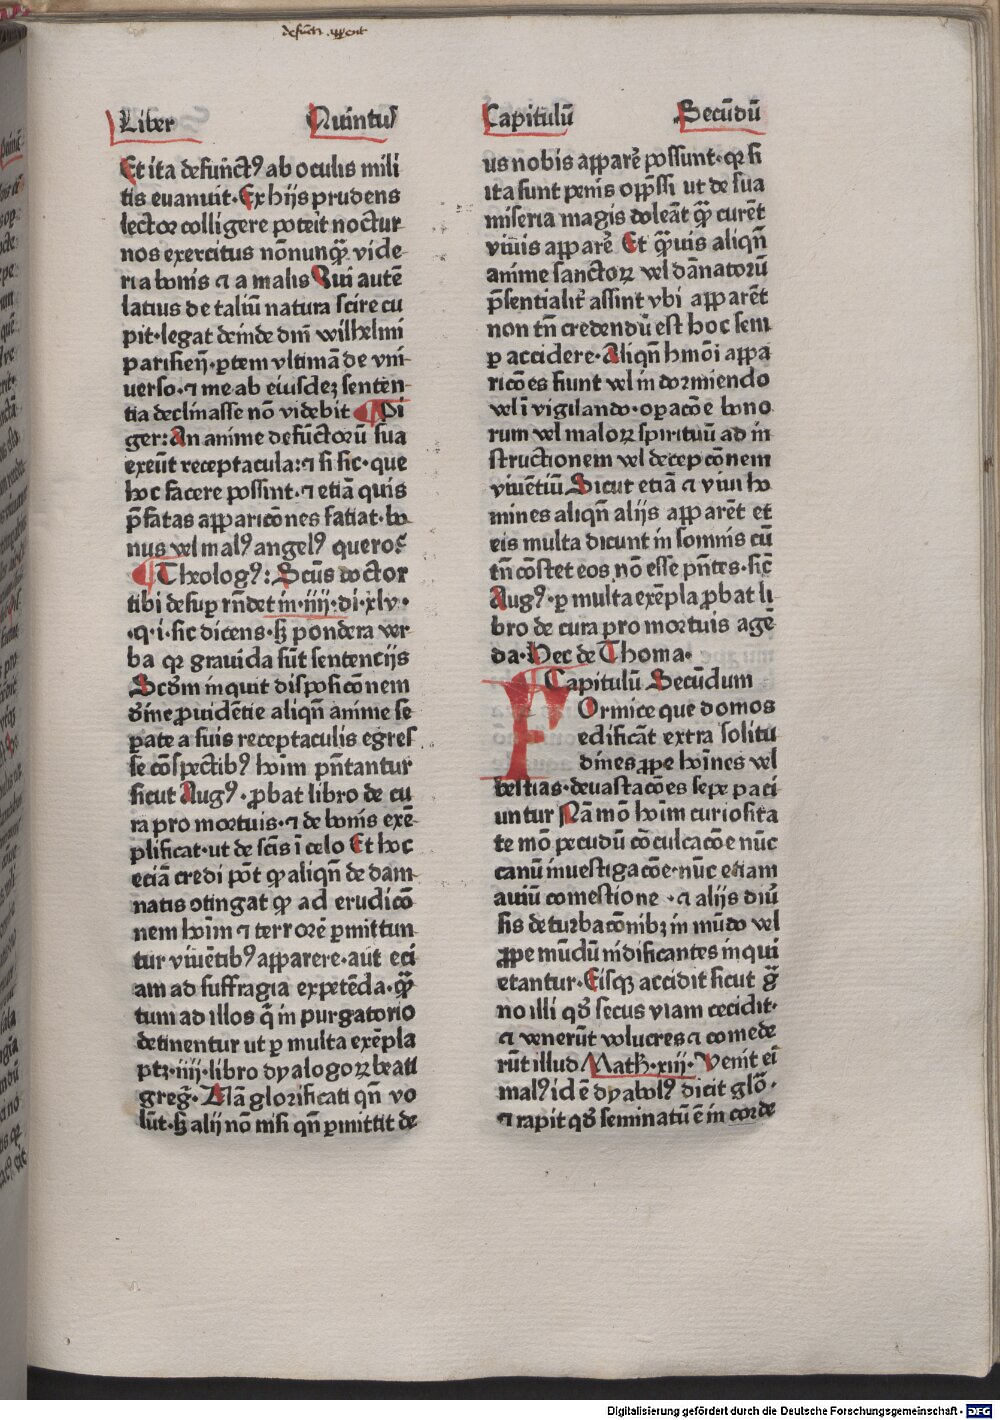 defuncti apparent
Liber Quintus Capitulū Secūdū
Et ita defunctꝰ ab oculis mili
tis euanuit. Ex hijs prudens
lector colligere poterit noctur
nos exercitus nōnunqꝫ vide-
ri a bonis ⁊ a malis Qui autē
latius de taliū natura scire cu
pit. legat deinde dn̄i wilhelmi
parisieñ. ꝑtem vltimā de vni
uerso. ⁊ me ab eiusdeꝫ senten-
tia declinasse nō videbit ¶ Pi
ger: An anime defūctorū sua
exeūt receptacula: ⁊ si sic. que
hoc facere possint. ⁊ etiā quis
p̄fatas apparicōnes faciat. bo
nus vel malꝰ angelꝰ
¶ Theologꝰ: Scūs doctor
tibi desuꝑ rn̄det in .iiij. di. xlv.
.q. i. sic dicens. sꝫ pondera ver
ba qꝛ grauida sūt sentencijs
Scdm̄ inquit disposicōnem
diīne ꝓuidētie aliqn̄ anime se
ꝑate a suis receptaculis egres
se cōspectibꝰ hoīm pn̄tantur
sicut Augꝰ. ꝓbat libro de cu
ra pro mortuis. ⁊ de bonis exē-
plificat. ut de scīs ī celo Et hoc
eciā credi pōt qꝙ aliqn̄ de dam
natis ɔtingat qꝙ ad erudicō
nem hoīm ⁊ terrorē ꝑmittun
tur viuētibꝰ apparere. aut eci
am ad suffragia expetēda. qꝫ̄
tum ad illos q̄ in purgatorio
detinentur ut ꝑ multa exēpla
ptꝫ .iiij. libro dyalogoꝝ beati
greḡ. Nā glorificati qn̄ vo
lūt. sꝫ alij nō nisi qn̄ ꝑmittit de
us nobis apparē possunt. qꝛ si
ita sunt penis opp̄ssi ut de sua
miseria magis doleāt qꝫ̄ curēt
viuis apparē Et qꝫ̄uis aliqn̄
anime sanctoꝝ vel dānatorū
p̄sentialit̄ assint vbi apparēt
non tn̄ credendū est hoc sem
ꝑ accidere. Aliqn̄ hmōi appa
ricōes fiunt vel in dormiendo
vel ī vigilando. oꝑacōe bono
rum vel maloꝝ spirituū ad in
structionem vel decepcōnem
viuētiū Sicut etiā ⁊ viui ho
mines aliqn̄ alijs apparēt et
eis multa dicunt in somnis cū
tn̄ cōstet eos nō esse pn̄tes. sic̄
Augꝰ. ꝑ multa exēpla ꝓbat li
bro de cura pro mortuis agē
da. Hec de Thoma.
Capitulū Secundum
Formice que domos
edificāt extra solitu
dīnes ꝓpe hoīnes vel
bestias. deuastacōes sepe paci
untur Nā mō hoīm curiosita
te mō pecudū cōculcacōe nūc
canū inuestigacōe. nūc etiam
auiū comestione . ⁊ alijs diū
sis deturbacōnibꝫ in mūdo vel
ꝓpe mūdū nidificantes inqui
etantur. Eisqꝫ accidit sicut g̃
no illi qd̄ secus viam cecidit.
⁊ venerūt volucres ⁊ comede
rūt illud Math. xiij. Venit eī
malꝰ id ē dyabolꝰ dicit glō.
⁊ rapit qd̄ seminatū ē in corde
Digitalisierung gefördert durch die Deutsche Forschungsgemeinschaft - DFG